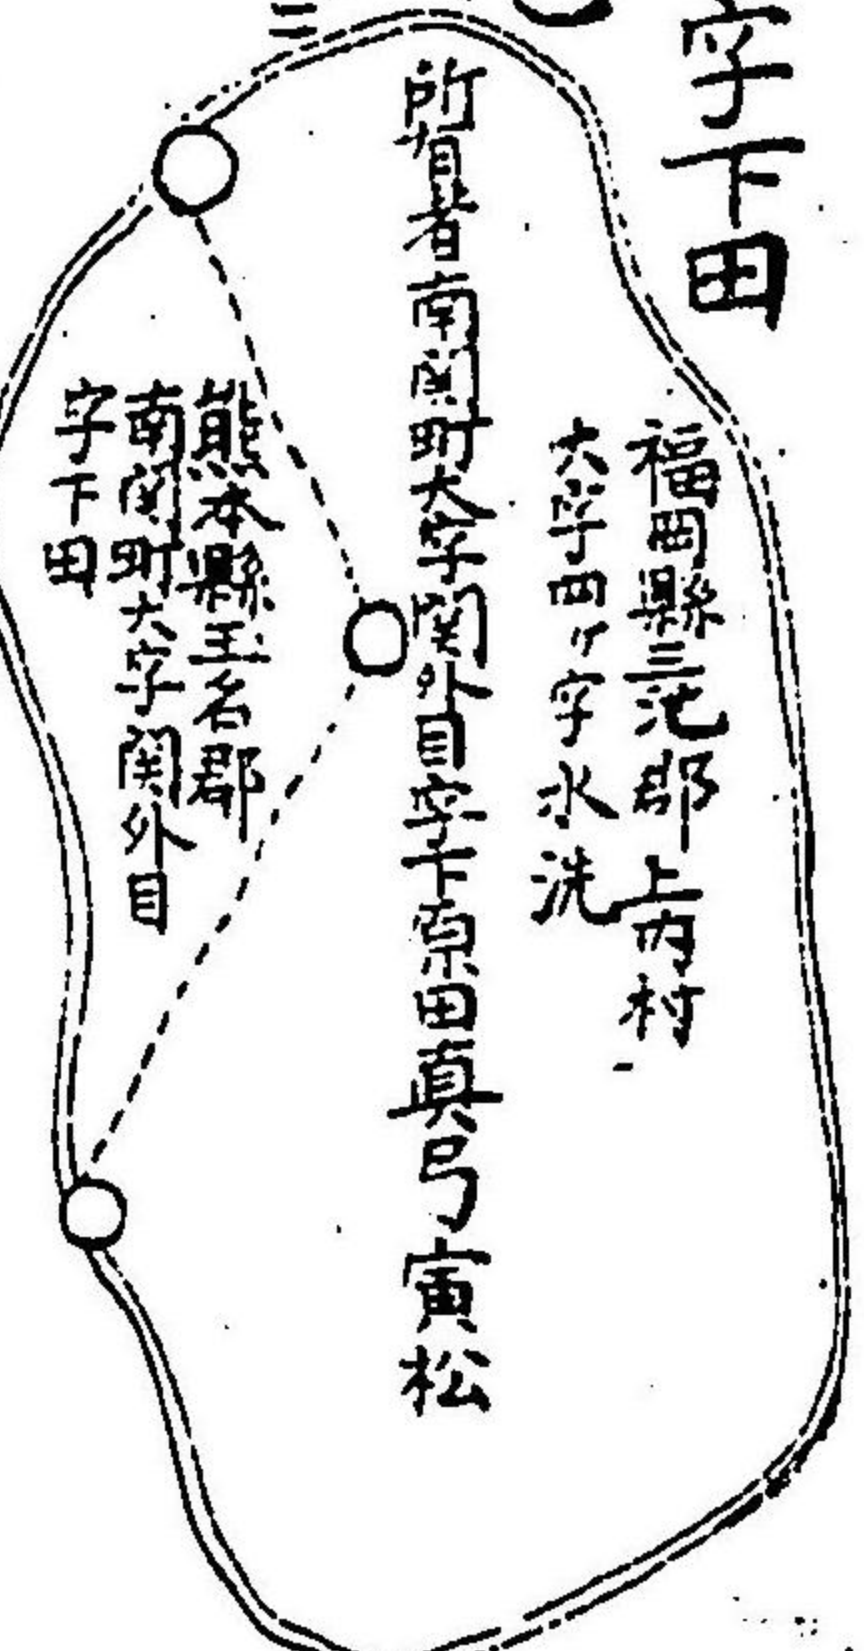 字下田
福岡縣三池郡上内村
大字四ケ字水洗
所有者南関町大字関外目字下原田真弓寅松
熊本縣玉名郡
南関町大字関外目
字下田